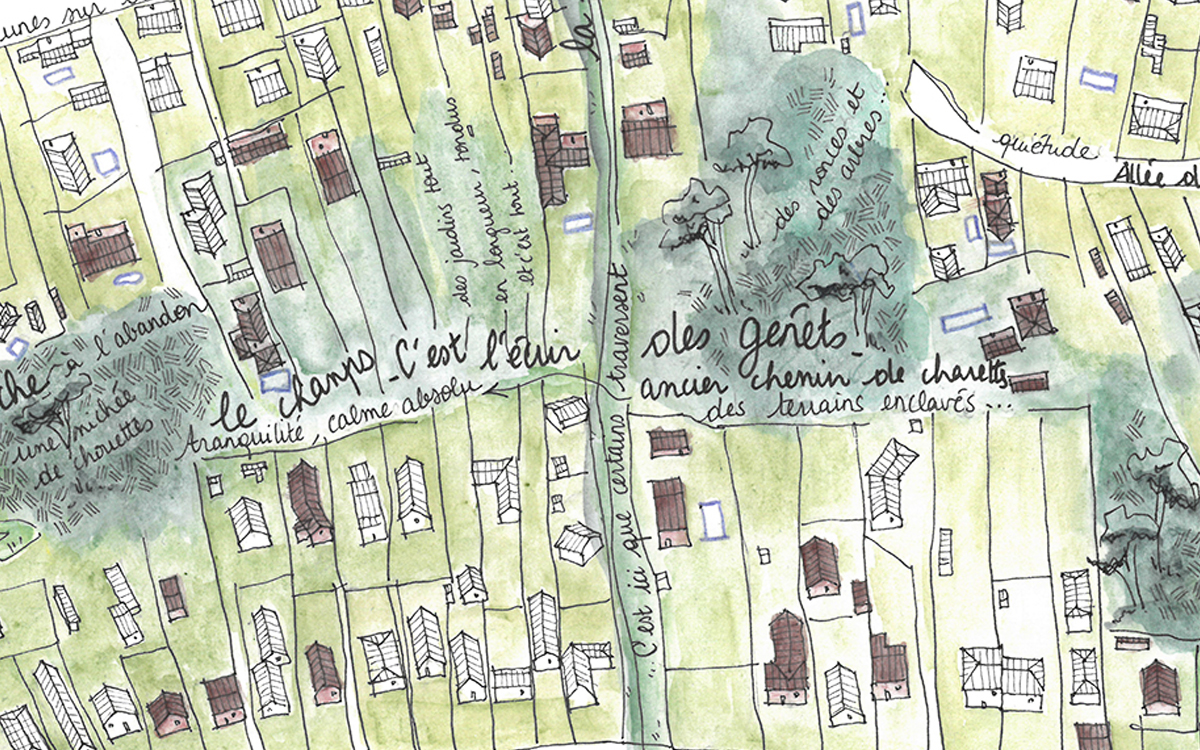 sur
la
des jardins tout
en longueur, tondus
et c'est tout..
des ronces et
des arbres..
quiétude
Allée d
à l'abandon
une nichée
de chouettes
le champs - C'est l'écrin des genêts -
tranquilité, calme absolu
ancien chemin de charettes
des terrains enclavés ...
C'est ici que certains (traversent